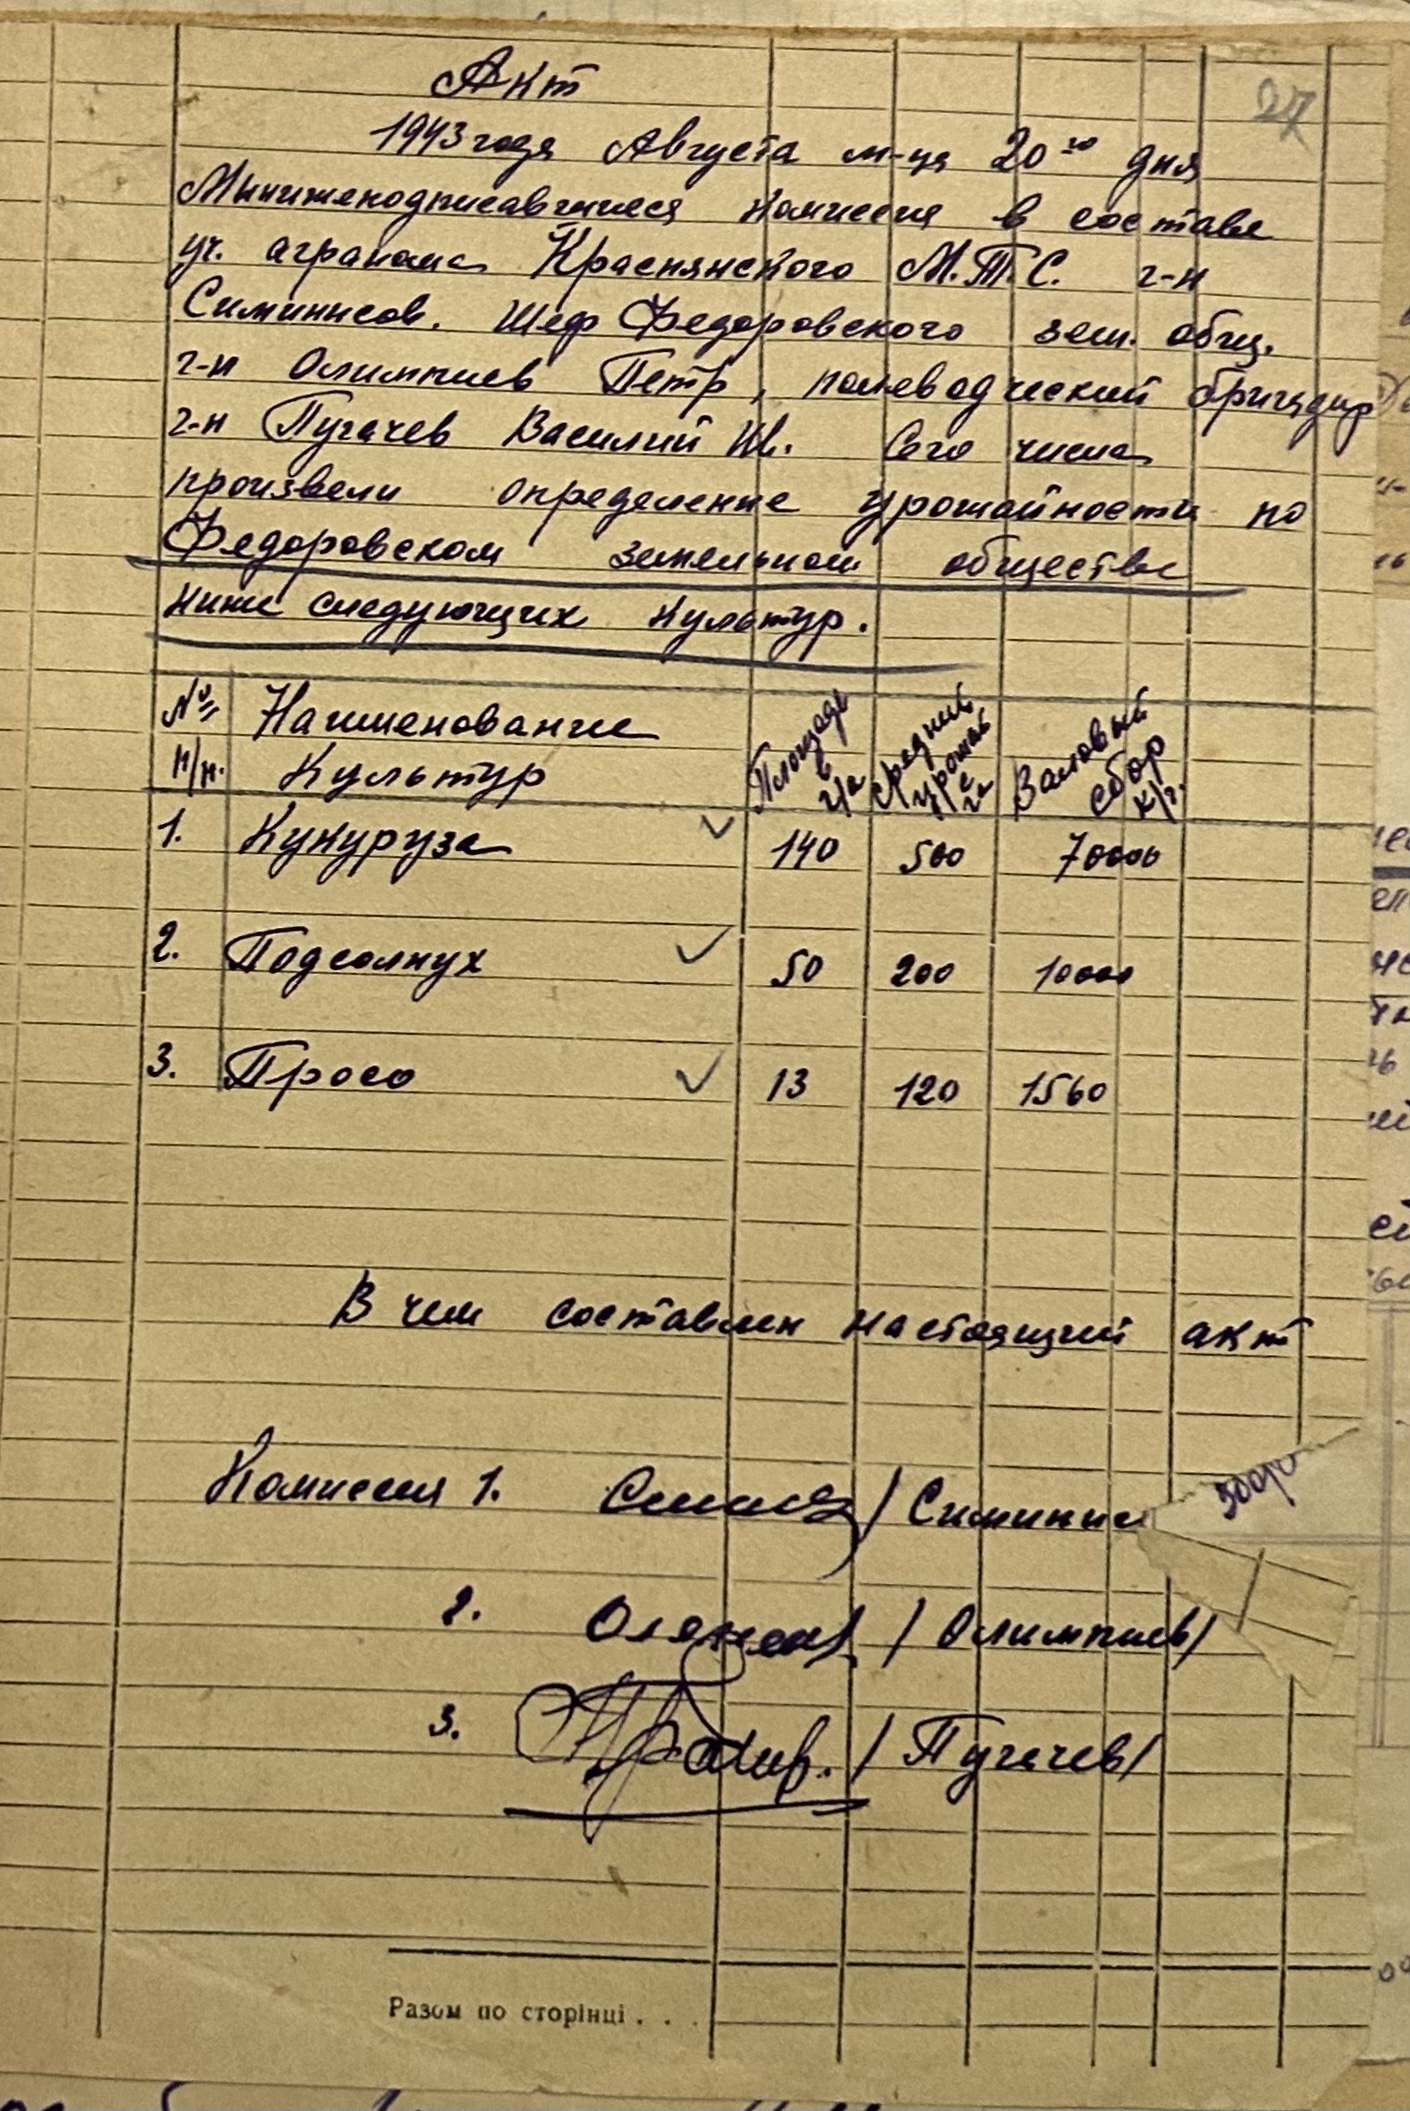 27
Акт
1943 года Августа м-ца 20го дня
Мынижеподписавшиеся комиссия в составе
уч. агранома Краснянского М.Т.С. г-н
Симинисов. Шеф Федоровского зем. общ.
г-н Олимпиев Петр, полеводческий бригадир
г-н Пугачев Василий Ив. Сего числа
произвели определение урожайности по
Федоровском земельном обществе
ниже следующих культур.
№№ п/п. Наименование Культур Площадь в г/а Средний урожай с га Валовый сбор к/г.
1. Кукуруза ✓ 140 500 70000
2. Подсолнух ✓ 50 200 10000
3. Просо ✓ 13 120 1560
В чем составлен настоящий акт
Комиссия 1. / Симинис
2. / Олимпиев/
3. / Пугачев/
Разом по сторінці . . .